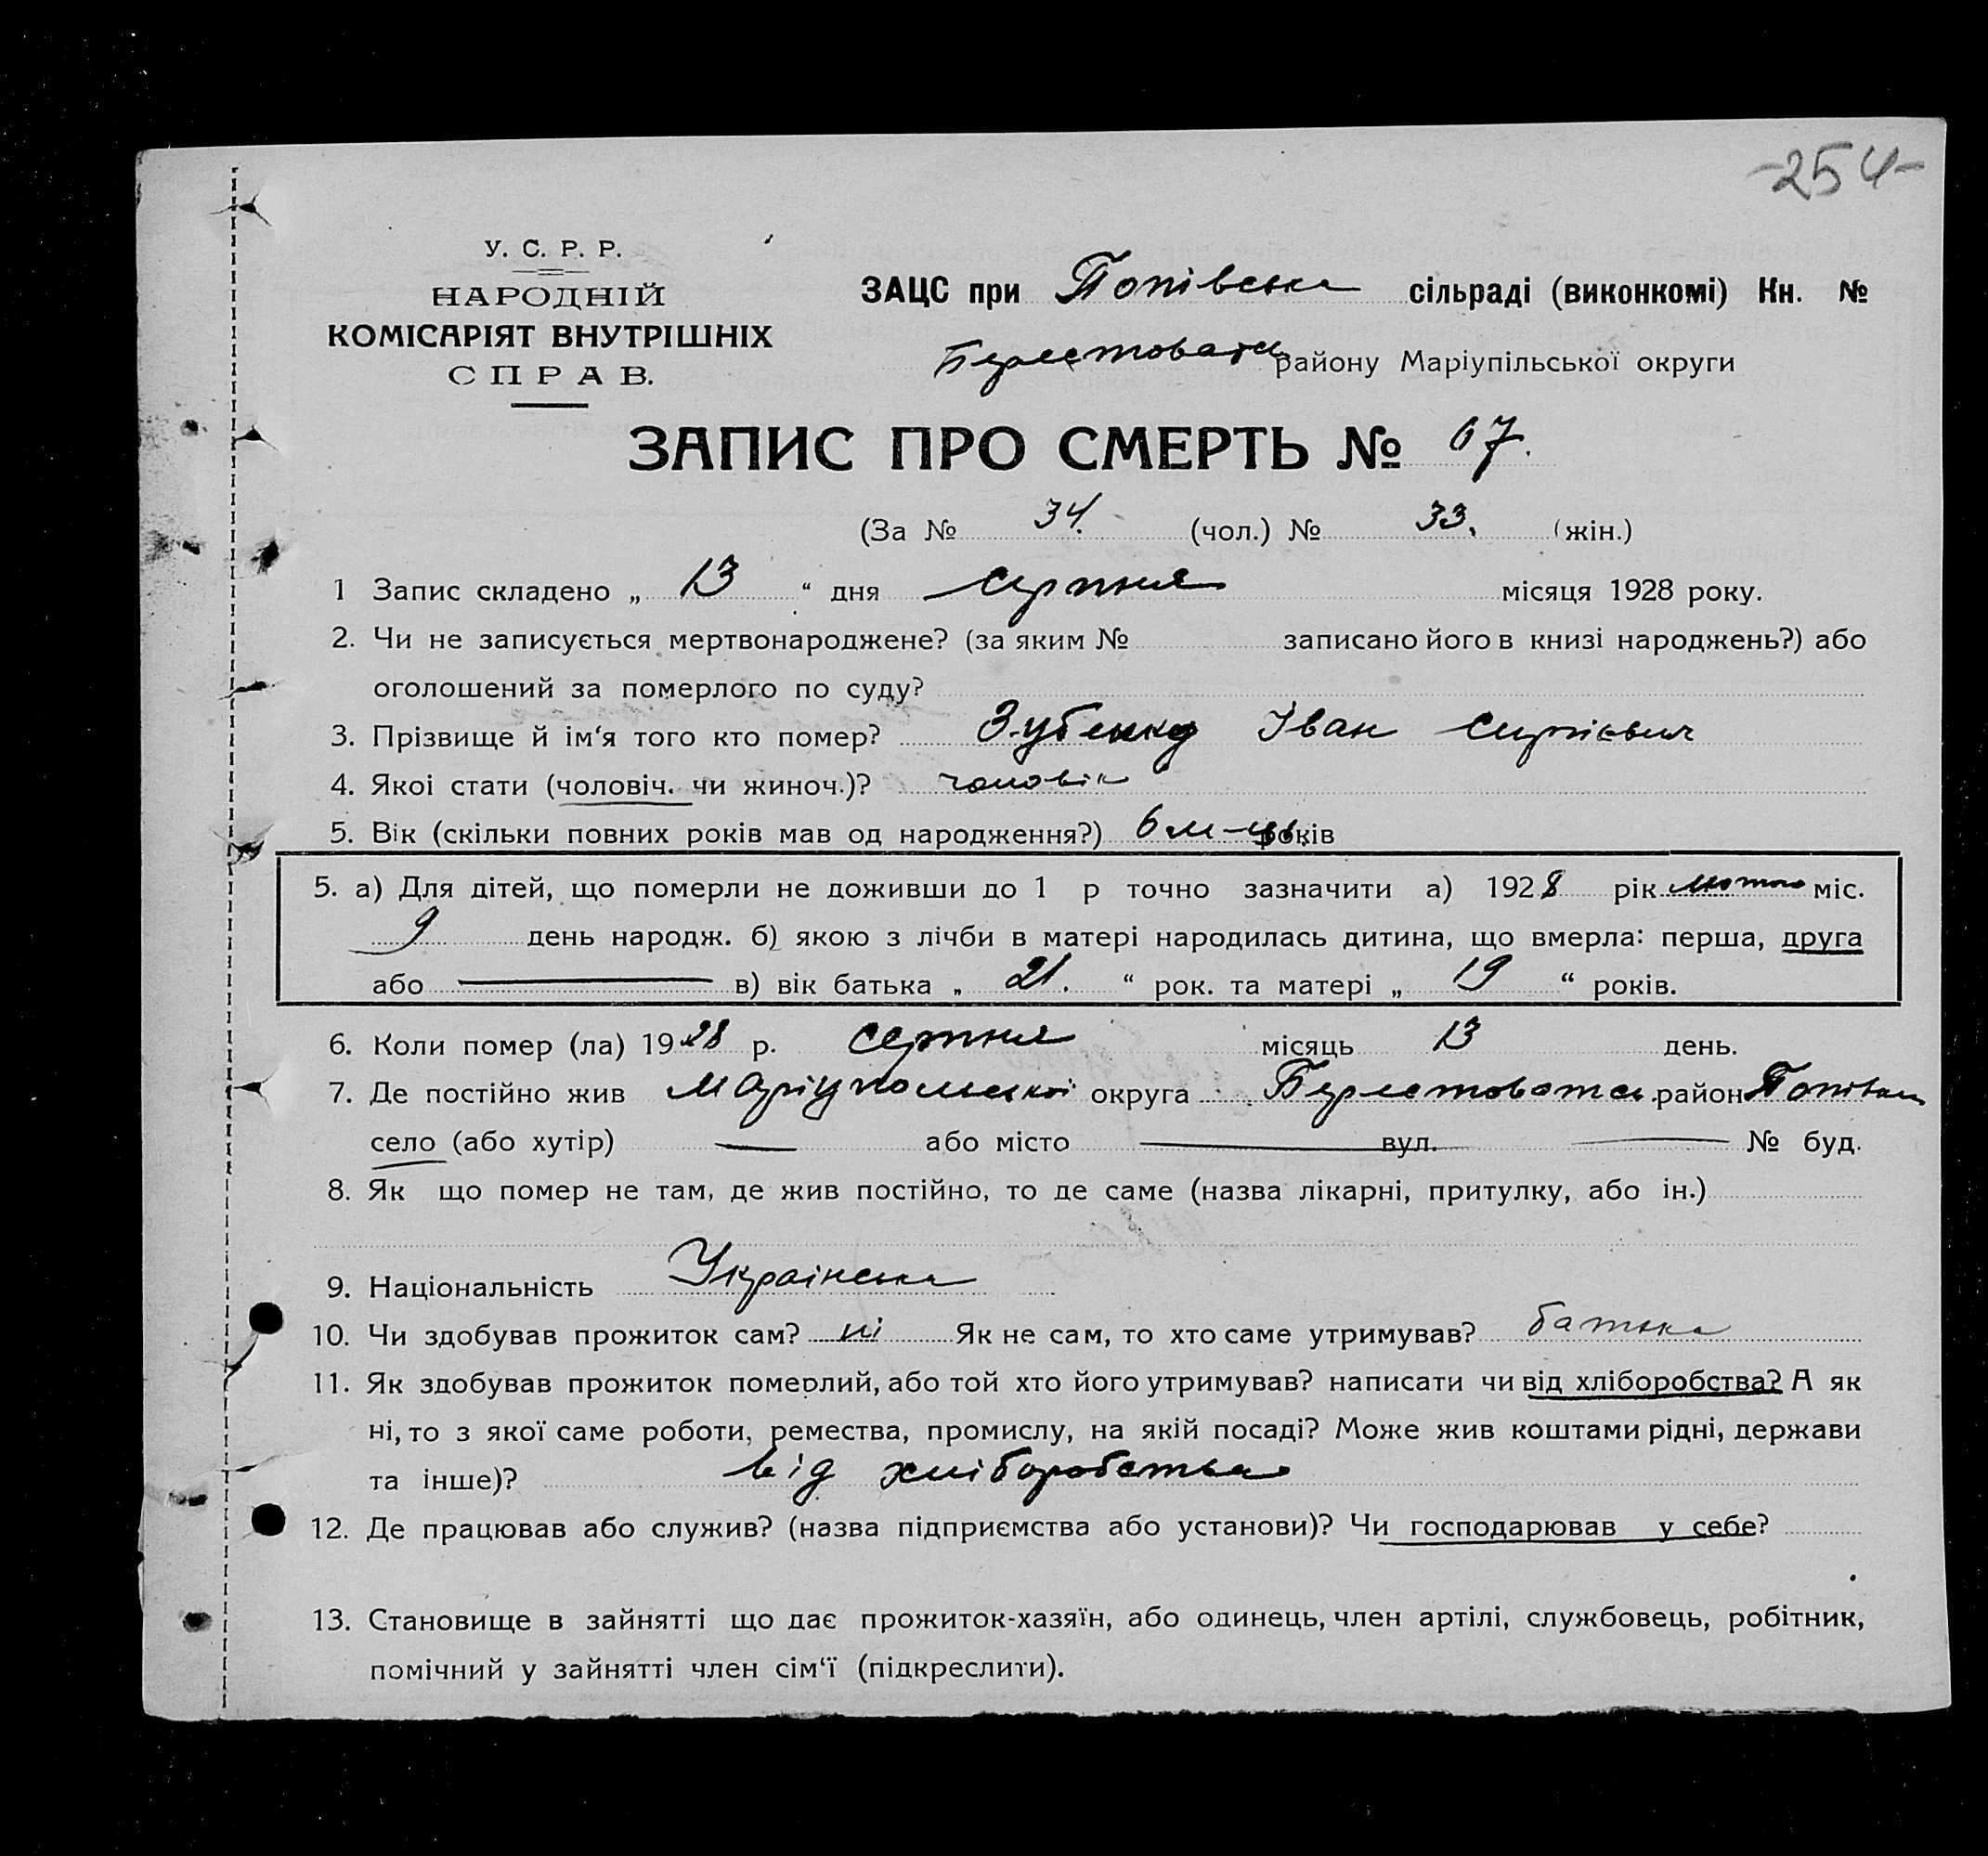 -254-
У. С. Р. Р.
НАРОДНІЙ
КОМІСАРІЯТ ВНУТРІШНІХ
СПРАВ.
ЗАЦС при Попівська сільраді (виконкомі) Кн. №
району Маріупільської округи
ЗАПИС ПРО СМЕРТЬ № 67.
(За № 34. (чол.) № 33. (жін.)
1 Запис складено „ 13 “ дня серпня місяця 1928 року.
2. Чи не записується мертвонароджене? (за яким № записано його в книзі народжень?) або
оголошений за померлого по суду?
3. Прізвище й ім‘я того кто помер? Зубенко Іван Сергієвич
4. Якоі стати (чоловіч. чи жиноч.)? чоловік
5. Вік (скільки повних років мав од народження?) 6 м-ців років
5. а) Для дітей, що померли не доживши до 1 р точно зазначити а) 1928 рік лютого міс.
9 день народж. б) якою з лічби в матері народилась дитина, що вмерла: перша, друга
або — в) вік батька „ 21. “ рок. та матері „ 19 “ років.
6. Коли помер (ла) 1928 р. серпня місяць 13 день.
7. Де постійно жив Маріупольської округа Берестоватськ. район Попівка
село (або хутір) — або місто — вул. — № буд.
8. Як що помер не там, де жив постійно, то де саме (назва лікарні, притулку, або ін.)
9. Національність Українська
10. Чи здобував прожиток сам? ні Як не сам, то хто саме утримував? батька
11. Як здобував прожиток померлий, або той хто його утримував? написати чи від хліборобства? А як
ні, то з якої саме роботи, ремества, промислу, на якій посаді? Може жив коштами рідні, держави
та інше)? від хліборобства
12. Де працював або служив? (назва підприємства або установи)? Чи господарював у себе?
13. Становище в зайнятті що дає прожиток-хазяїн, або одинець, член артілі, службовець, робітник,
помічний у зайнятті член сім‘ї (підкреслити).